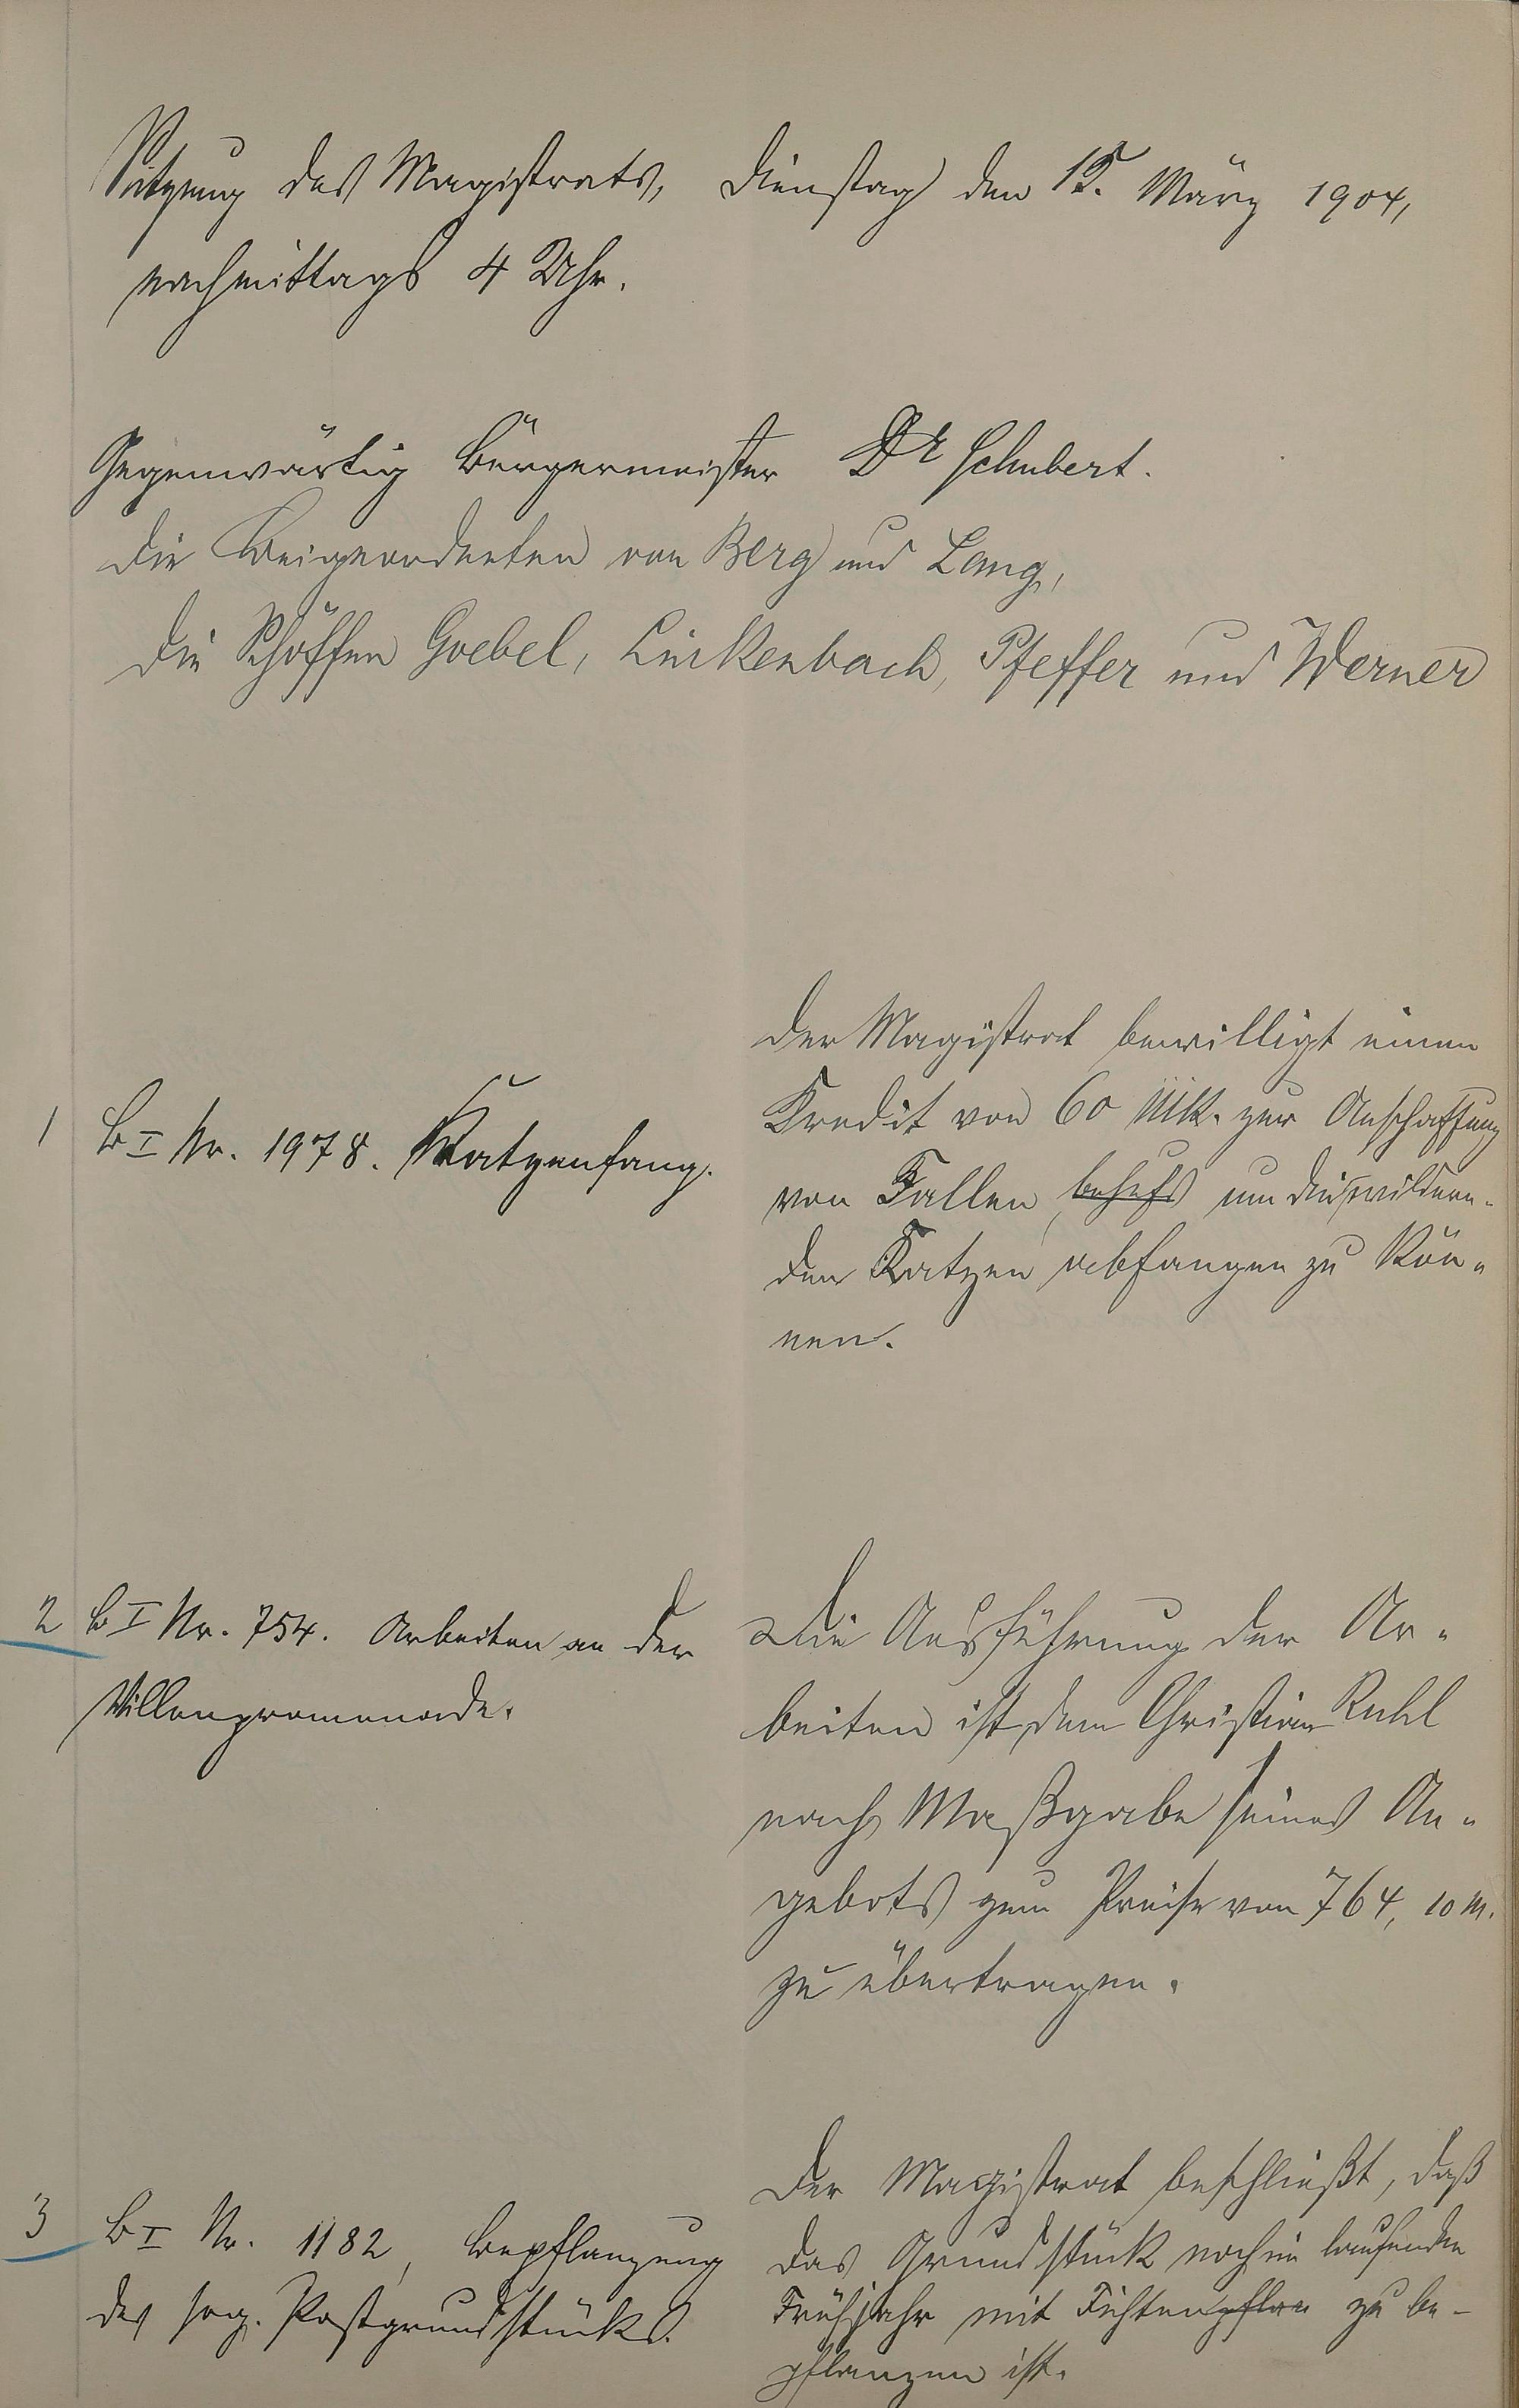 Sitzung des Magistrats, Dienstag den 15. März 1904,
nachmittags 4 Uhr.
Gegenwärtig Bürgermeister Dr Schubert.
die Beigeordneten von Berg und Lang,
die Schöffen Goebel, Linkenbach, Pfeffer und Werner
1 B I Nr. 1978. Katzenfang.
Der Magistrat bewilligt einen
Kredit von 60 Mk. zur Anschaffung
von Fallen, behufs um die wildern-
den Katzen abfangen zu kön-
nen.
2 B I Nr. 754. Arbeiten an der
Villenpromenade.
Die Ausführung der Ar-
beiten ist dem Christian Ruhl
nach Maßgabe seines An-
gebots zum Preise von 764,10 M.
zu übertragen.
3 B I Nr. 1182, Bepflanzung
des sog. Postgrundstücks.
Der Magistrat beschließt, daß
das Grundstück noch im laufenden
Frühjahr mit Fichtenpflan zu be-
pflanzen ist.